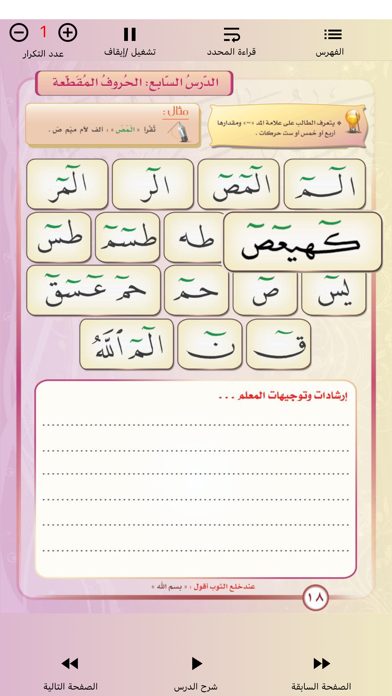 الفهرس
قراءة المحدد
تشغيل /إيقاف
1
عدد التكرار
الدّرسُ السّابع: الحُروفُ المُقَطّعة
* يتعرف الطالب على علامة المد «~» ومقدارها
أربع أو خمس أو ست حركات .
مثال :
تُقرأ « الٓمٓصٓ » : الف لام ميم ص .
الٓـمٓ الٓمٓصٓ الٓر الٓمٓر
كٓهيعٓصٓ طه طسٓمٓ طسٓ
يسٓ صٓ حمٓ حمٓ عٓسٓقٓ
قٓ نٓ الٓمٓ ٱللَّهُ
إرشادات وتوجيهات المعلم . . .
عند خلع الثوب أقول : « بسم الله »
١٨
الصفحة السابقة
شرح الدرس
الصفحة التالية